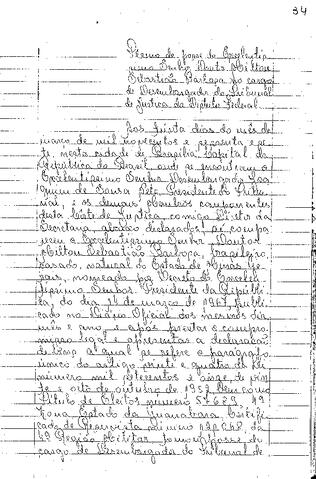 34
Termo de posse do Excelentis-
simo Senhor Doutor Milton
Sebastião Barbosa no cargo
de Desembargador do Tribunal
de Justiça do Distrito Federal.
Aos trinta dias do mês de
março de mil novecentos e sessenta e se-
te, nesta cidade de Brasília, Capital da
República do Brasil, onde se encontravam o
Excelentíssimo Senhor Desembargador Joa-
quim de Sousa Neto, Presidente do Tribu-
nal, e os demais membros componentes
desta Corte de Justiça, comigo Diretor da
Secretaria, abaixo declarado, aí compa-
receu o Excelentíssimo Senhor Doutor
Milton Sebastião Barbosa, brasileiro,
casado, natural do Estado de Minas Ge-
rais, nomeado por Decreto do Excelen-
tíssimo Senhor Presidente da Repúbli-
ca, do dia 14 de março de 1967, publi-
cado no Diário Oficial dos mesmos dia,
mês e ano, e após prestar o compro-
misso legal e apresentar a declaração
de bens a qual se refere o parágrafo
único do artigo vinte e quatro da Lei
número mil setecentos e onze, de vin-
te e oito de outubro de 1952, bem como
Título de Eleitor número 57689, 4ª
Zona, Estado da Guanabara, Certifi-
cado de Reservista número
Região Militar, tomou posse do
cargo de Desembargador do Tribunal de